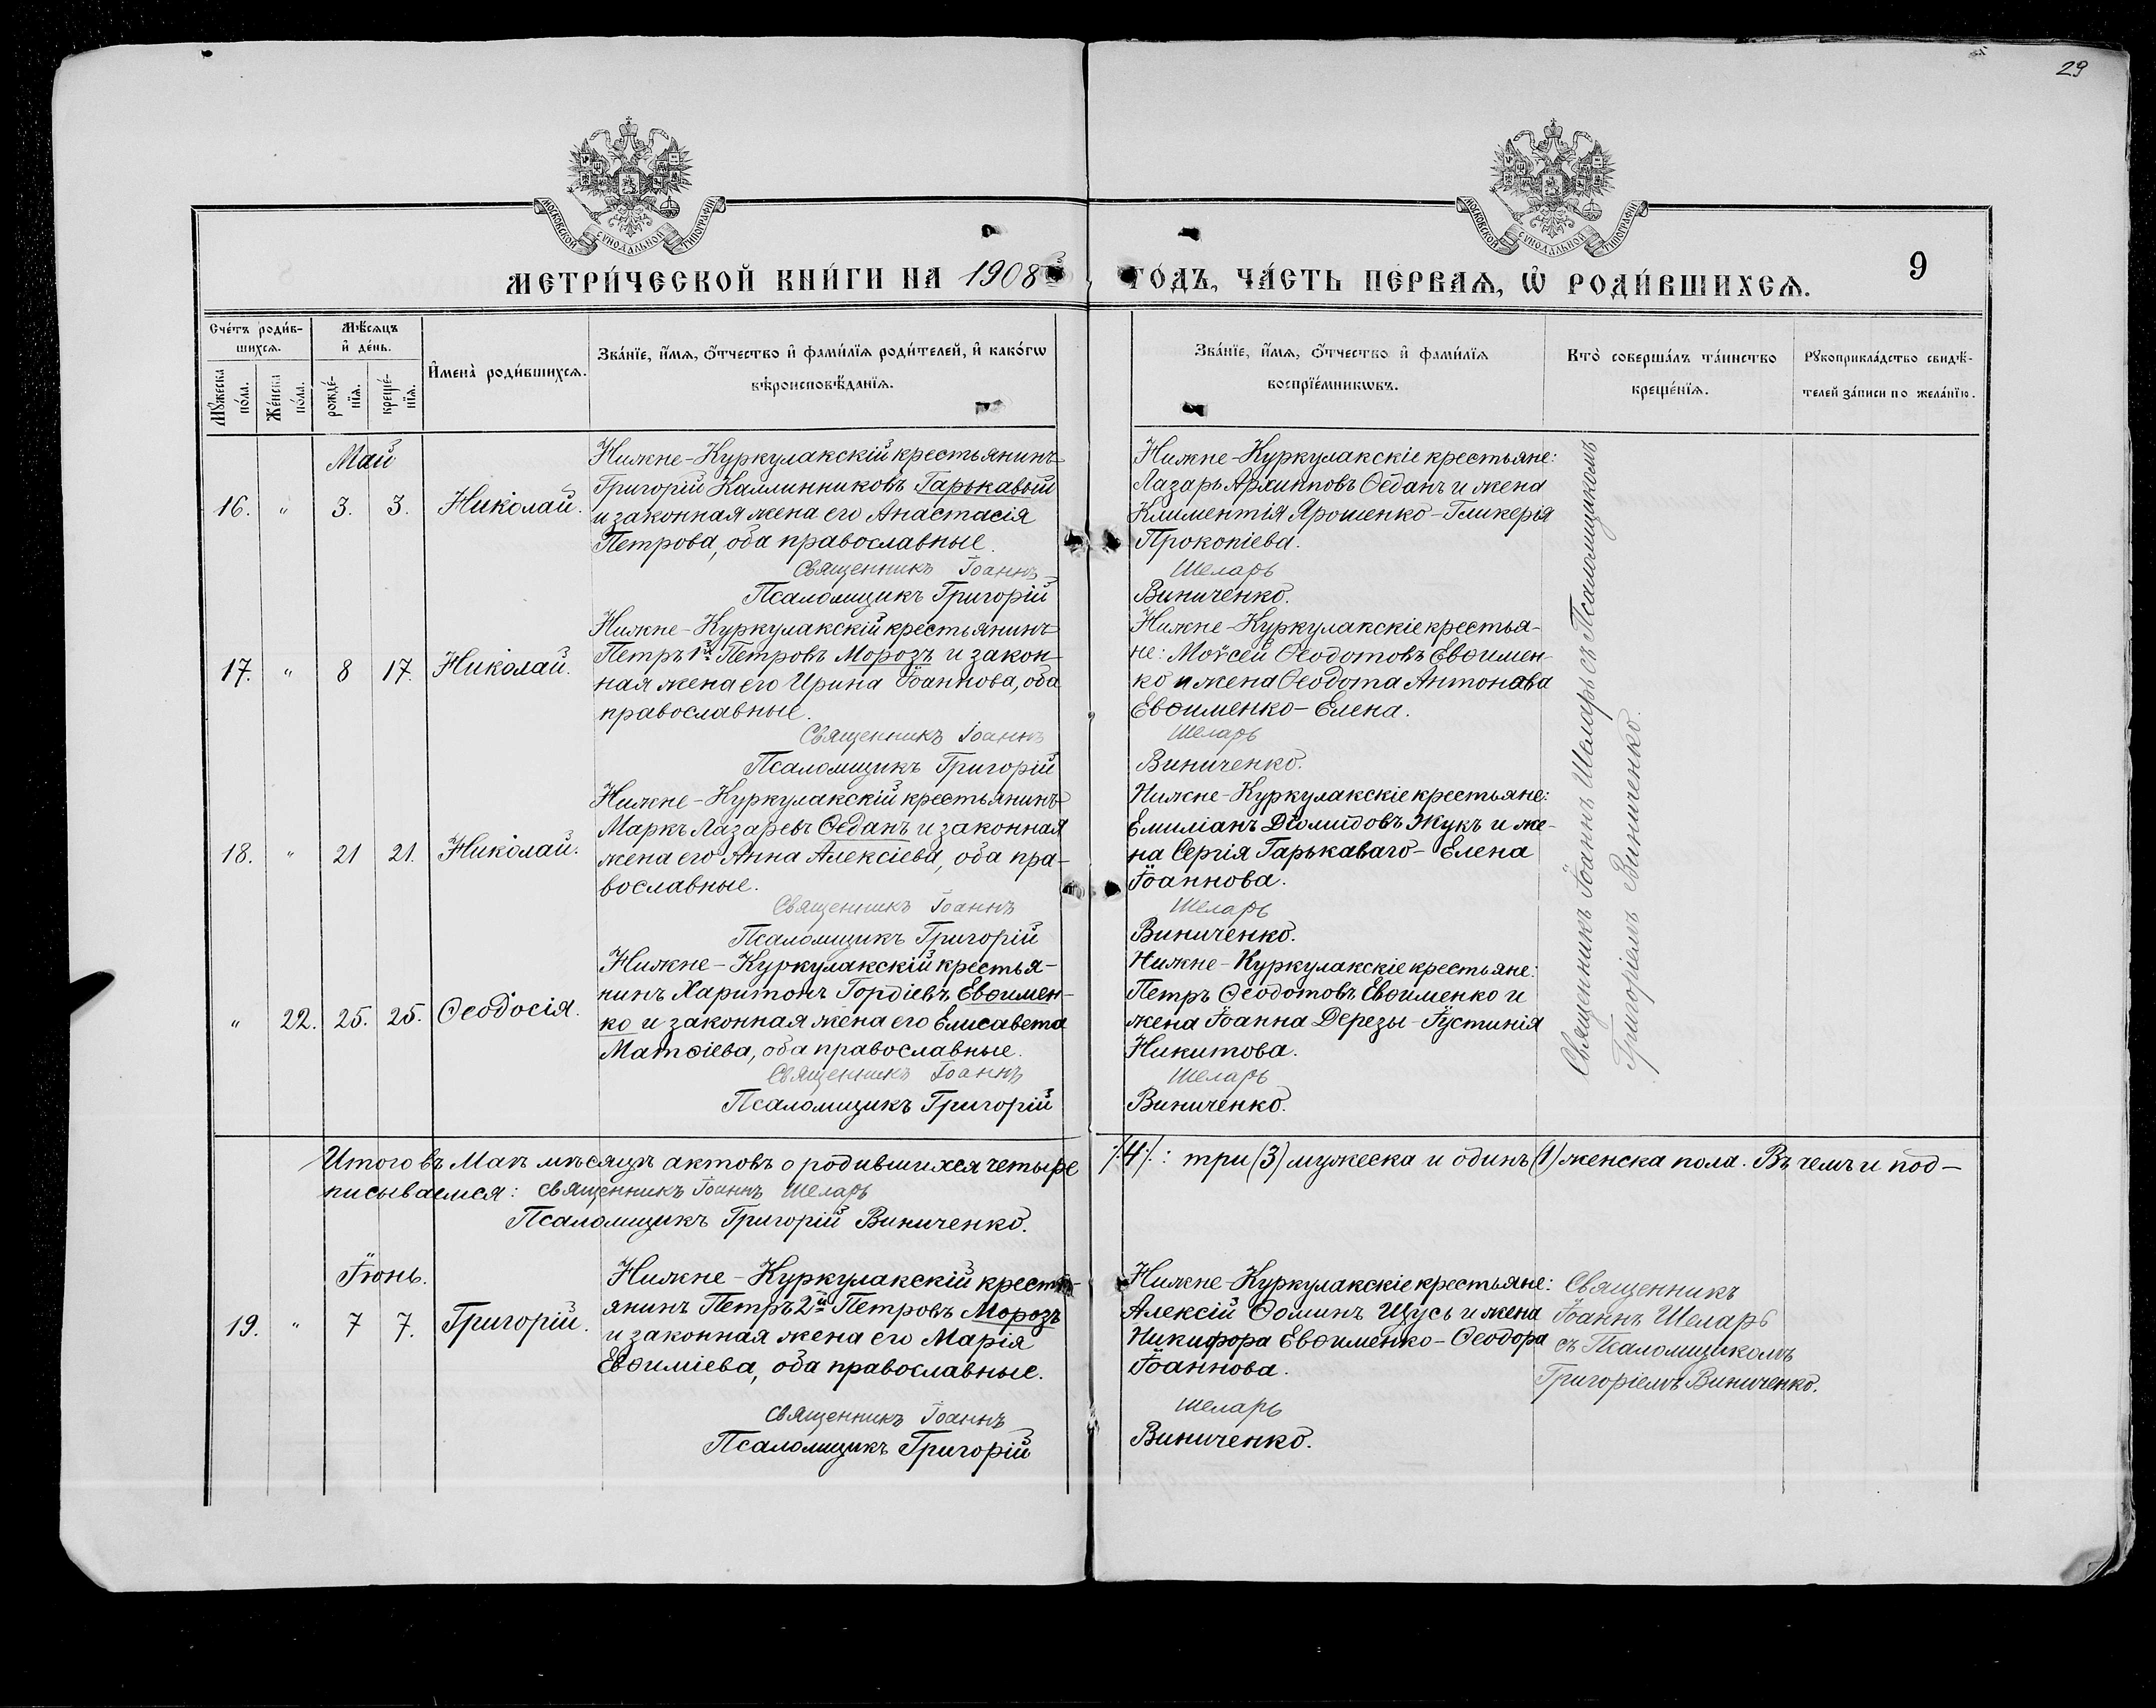 29
МОСКОВСКОЙ СѴНОДАЛЬНОЙ ТИПОГРАФІИ
МОСКОВСКОЙ СѴНОДАЛЬНОЙ ТИПОГРАФІИ
МЕТРИ́ЧЕСКОЙ КНИ́ГИ НА 1908й ГО́ДЪ, ЧА́СТЬ ПЕ́РВАѦ, Ѽ РОДИ́ВШИХСѦ. 9
Сче́тъ роди́в-
шихсѧ.
Мꙋ́жеска по́ла.
Же́нска по́ла.
Мѣ́сѧцъ
и҆ де́нь.
рожде́-
нїѧ.
креще́-
нїѧ.
И҆мена̀ роди́вшихсѧ.
Зва́нїе, и҆́мѧ, ѻ҆́тчество и҆ фами́лїѧ роди́телей, и҆ како́гѡ
вѣроисповѣ́данїѧ.
Зва́нїе, и҆́мѧ, ѻ҆́тчество и҆ фами́лїѧ
воспрїе́мникѡвъ.
Кто̀ соверша́лъ та́инство
креще́нїѧ.
Рꙋкоприкла́дство свидѣ́-
телей за́писи по жела́нїю.
Май
16. " 3. 3. Николай.
Нижне-Куркулакскій крестьянинъ
Григорій Каллинниковъ Гарькавый
и законная жена его Анастасія
Петрова, оба православные.
Священникъ Іоаннъ
Псаломщикъ Григорій
Нижне-Куркулакскіе крестьяне:
Лазарь Архипповъ Ѳеданъ и жена
Климентія Ярошенко-Гликерія
Прокопіева.
Шеларь
Виниченко.
17. " 8 17. Николай.
Нижне-Куркулакскій крестьянинъ
Петръ 1й Петровъ Морозъ и закон-
ная жена его Ирина Іоаннова, оба
православные.
Священникъ Іоаннъ
Псаломщикъ Григорій
Нижне-Куркулакскіе крестья-
не: Моѵсей Ѳеодотовъ Евѳимен-
ко и жена Ѳеодота Антонова
Евѳименко-Елена.
Шеларь
Виниченко.
18. " 21 21. Николай.
Нижне-Куркулакскій крестьянинъ
Маркъ Лазаревъ Ѳеданъ и законная
жена его Анна Алексіева, оба пра-
вославные.
Священникъ Іоаннъ
Псаломщикъ Григорій
Нижне-Куркулакскіе крестьяне:
Емиліанъ Діомидовъ Жукъ и же-
на Сергія Гарькаваго-Елена
Іоаннова.
Шеларь
Виниченко.
" 22. 25. 25. Ѳеодосія.
Нижне-Куркулакскій крестья-
нинъ Харитонъ Гордіевъ Евѳимен-
ко и законная жена его Елисавета
Матѳіева, оба православные.
Священникъ Іоаннъ
Псаломщикъ Григорій
Нижне-Куркулакскіе крестьяне:
Петръ Ѳеодотовъ Евѳименко и
жена Іоанна Дерезы-Іустинія
Никитова.
Шеларь
Виниченко.
Священникъ Іоаннъ Шеларь съ Псаломщикомъ
Григоріемъ Виниченко.
Итого въ Маѣ мѣсяцѣ актовъ о родившихся четыре /:4:/: три (3) мужеска и одинъ (1) женска пола. Въ чемъ и под-
писываемся: Священникъ Іоаннъ Шеларь
Псаломщикъ Григорій Виниченко.
Іюнь.
19. " 7 7. Григорій.
Нижне-Куркулакскій кресть-
янинъ Петръ 2й Петровъ Морозъ
и законная жена его Марія
Евѳиміева, оба православные.
Священникъ Іоаннъ
Псаломщикъ Григорій
Нижне-Куркулакскіе крестьяне:
Алексій Ѳоминъ Щусь и жена
Никифора Евѳименко-Ѳеодора
Іоаннова.
Шеларь
Виниченко.
Священникъ
Іоаннъ Шеларь
съ Псаломщикомъ
Григоріемъ Виниченко.